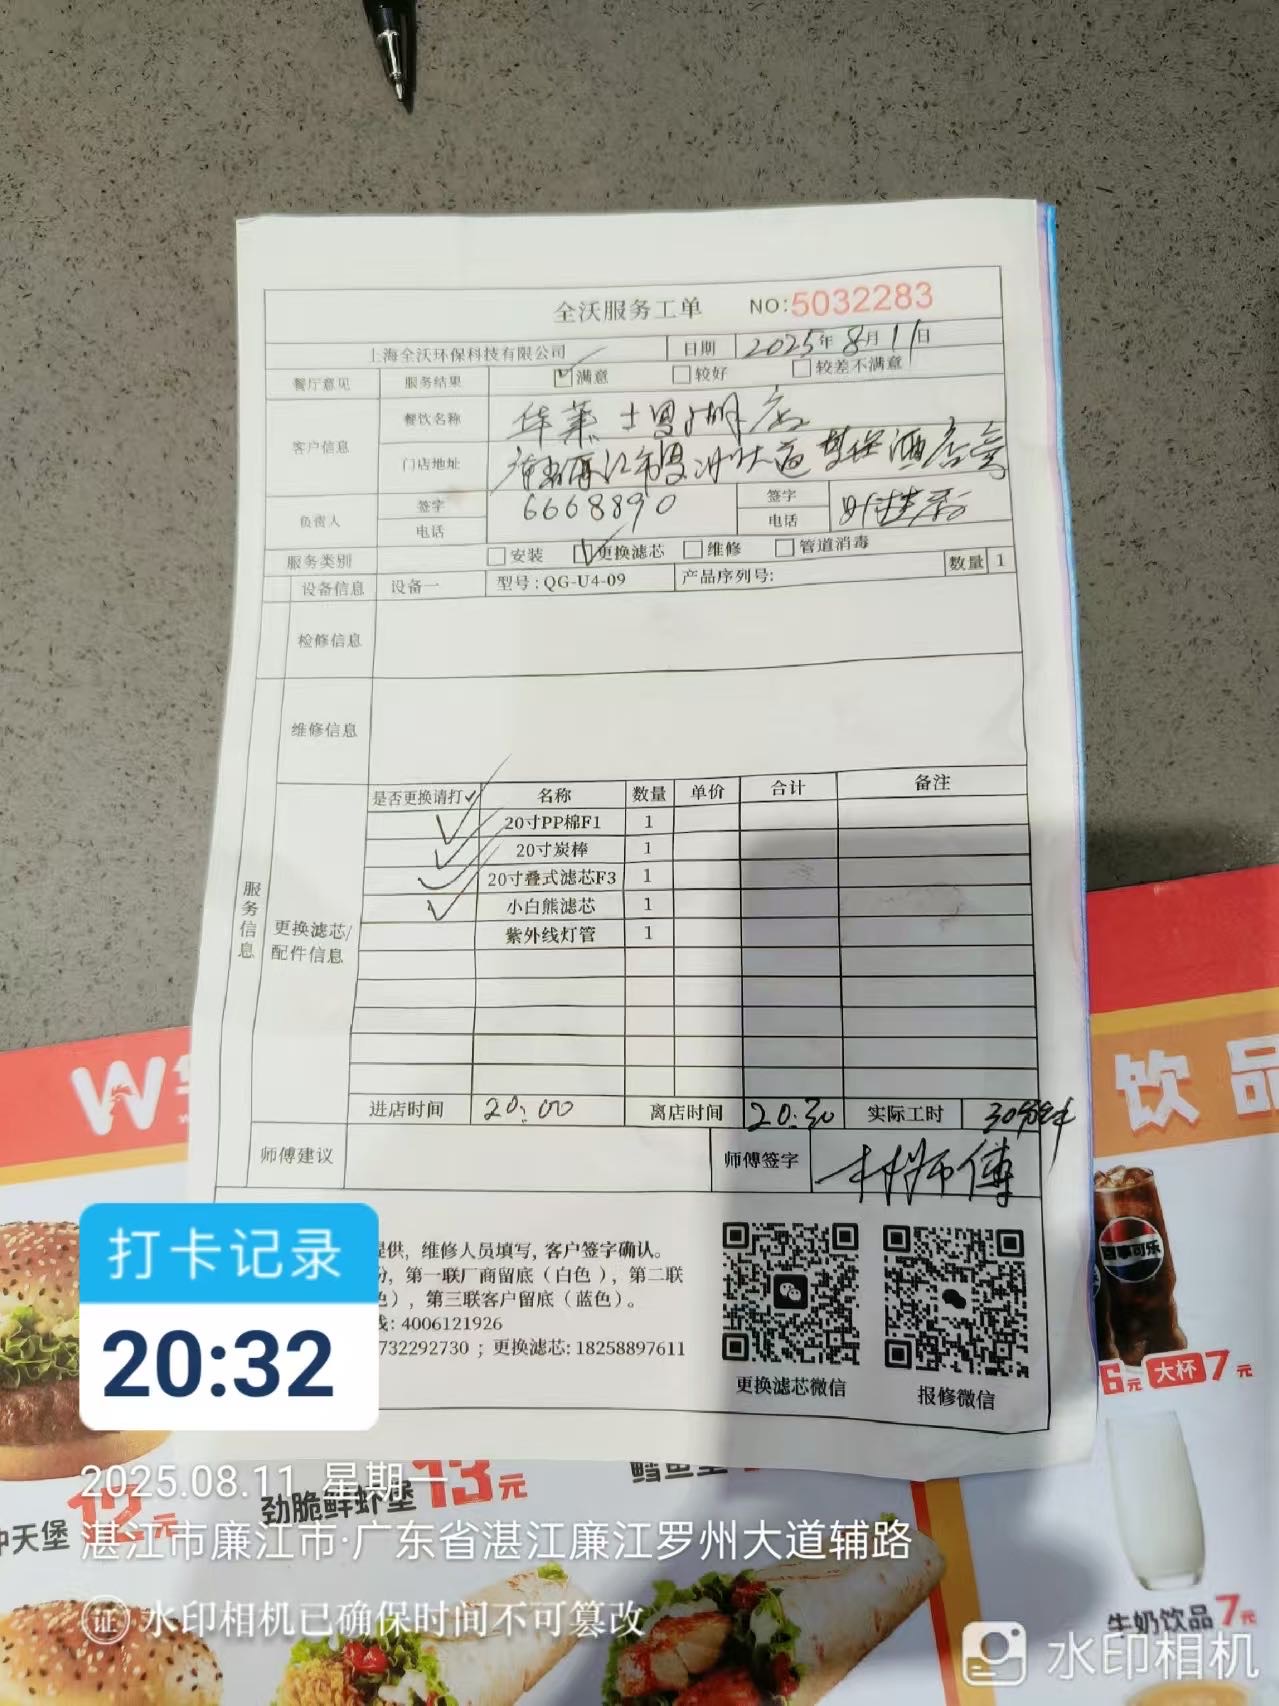 全沃服务工单 NO:5032283
上海全沃环保科技有限公司 日期 2025年8月11日
餐厅意见 服务结果 满意 较好 较差不满意
客户信息 餐饮名称 华莱士 湖店
门店地址 廉江市 大道 酒店旁
负责人 签字 6668890 签字
电话 电话
服务类别 安装 更换滤芯 维修 管道消毒
设备信息 设备一 型号:QG-U4-09 产品序列号: 数量 1
检修信息
维修信息
服务信息
更换滤芯/配件信息
是否更换请打✓ 名称 数量 单价 合计 备注
✓ 20寸PP棉F1 1
✓ 20寸炭棒 1
✓ 20寸叠式滤芯F3 1
✓ 小白熊滤芯 1
紫外线灯管 1
进店时间 20:00 离店时间 20:30 实际工时 30分钟
师傅建议 师傅签字 林师傅
提供, 维修人员填写, 客户签字确认。
份, 第一联厂商留底(白色), 第二联
色), 第三联客户留底(蓝色)。
线: 4006121926
732292730 ; 更换滤芯: 18258897611
更换滤芯微信 报修微信
打卡记录
20:32
2025.08.11 星期一
湛江市廉江市·广东省湛江廉江罗州大道辅路
证 水印相机已确保时间不可篡改
水印相机
W
饮品
百事可乐
6元 大杯7元
牛奶饮品7元
冲天堡 12元
劲脆鲜虾堡 13元
鳕鱼堡